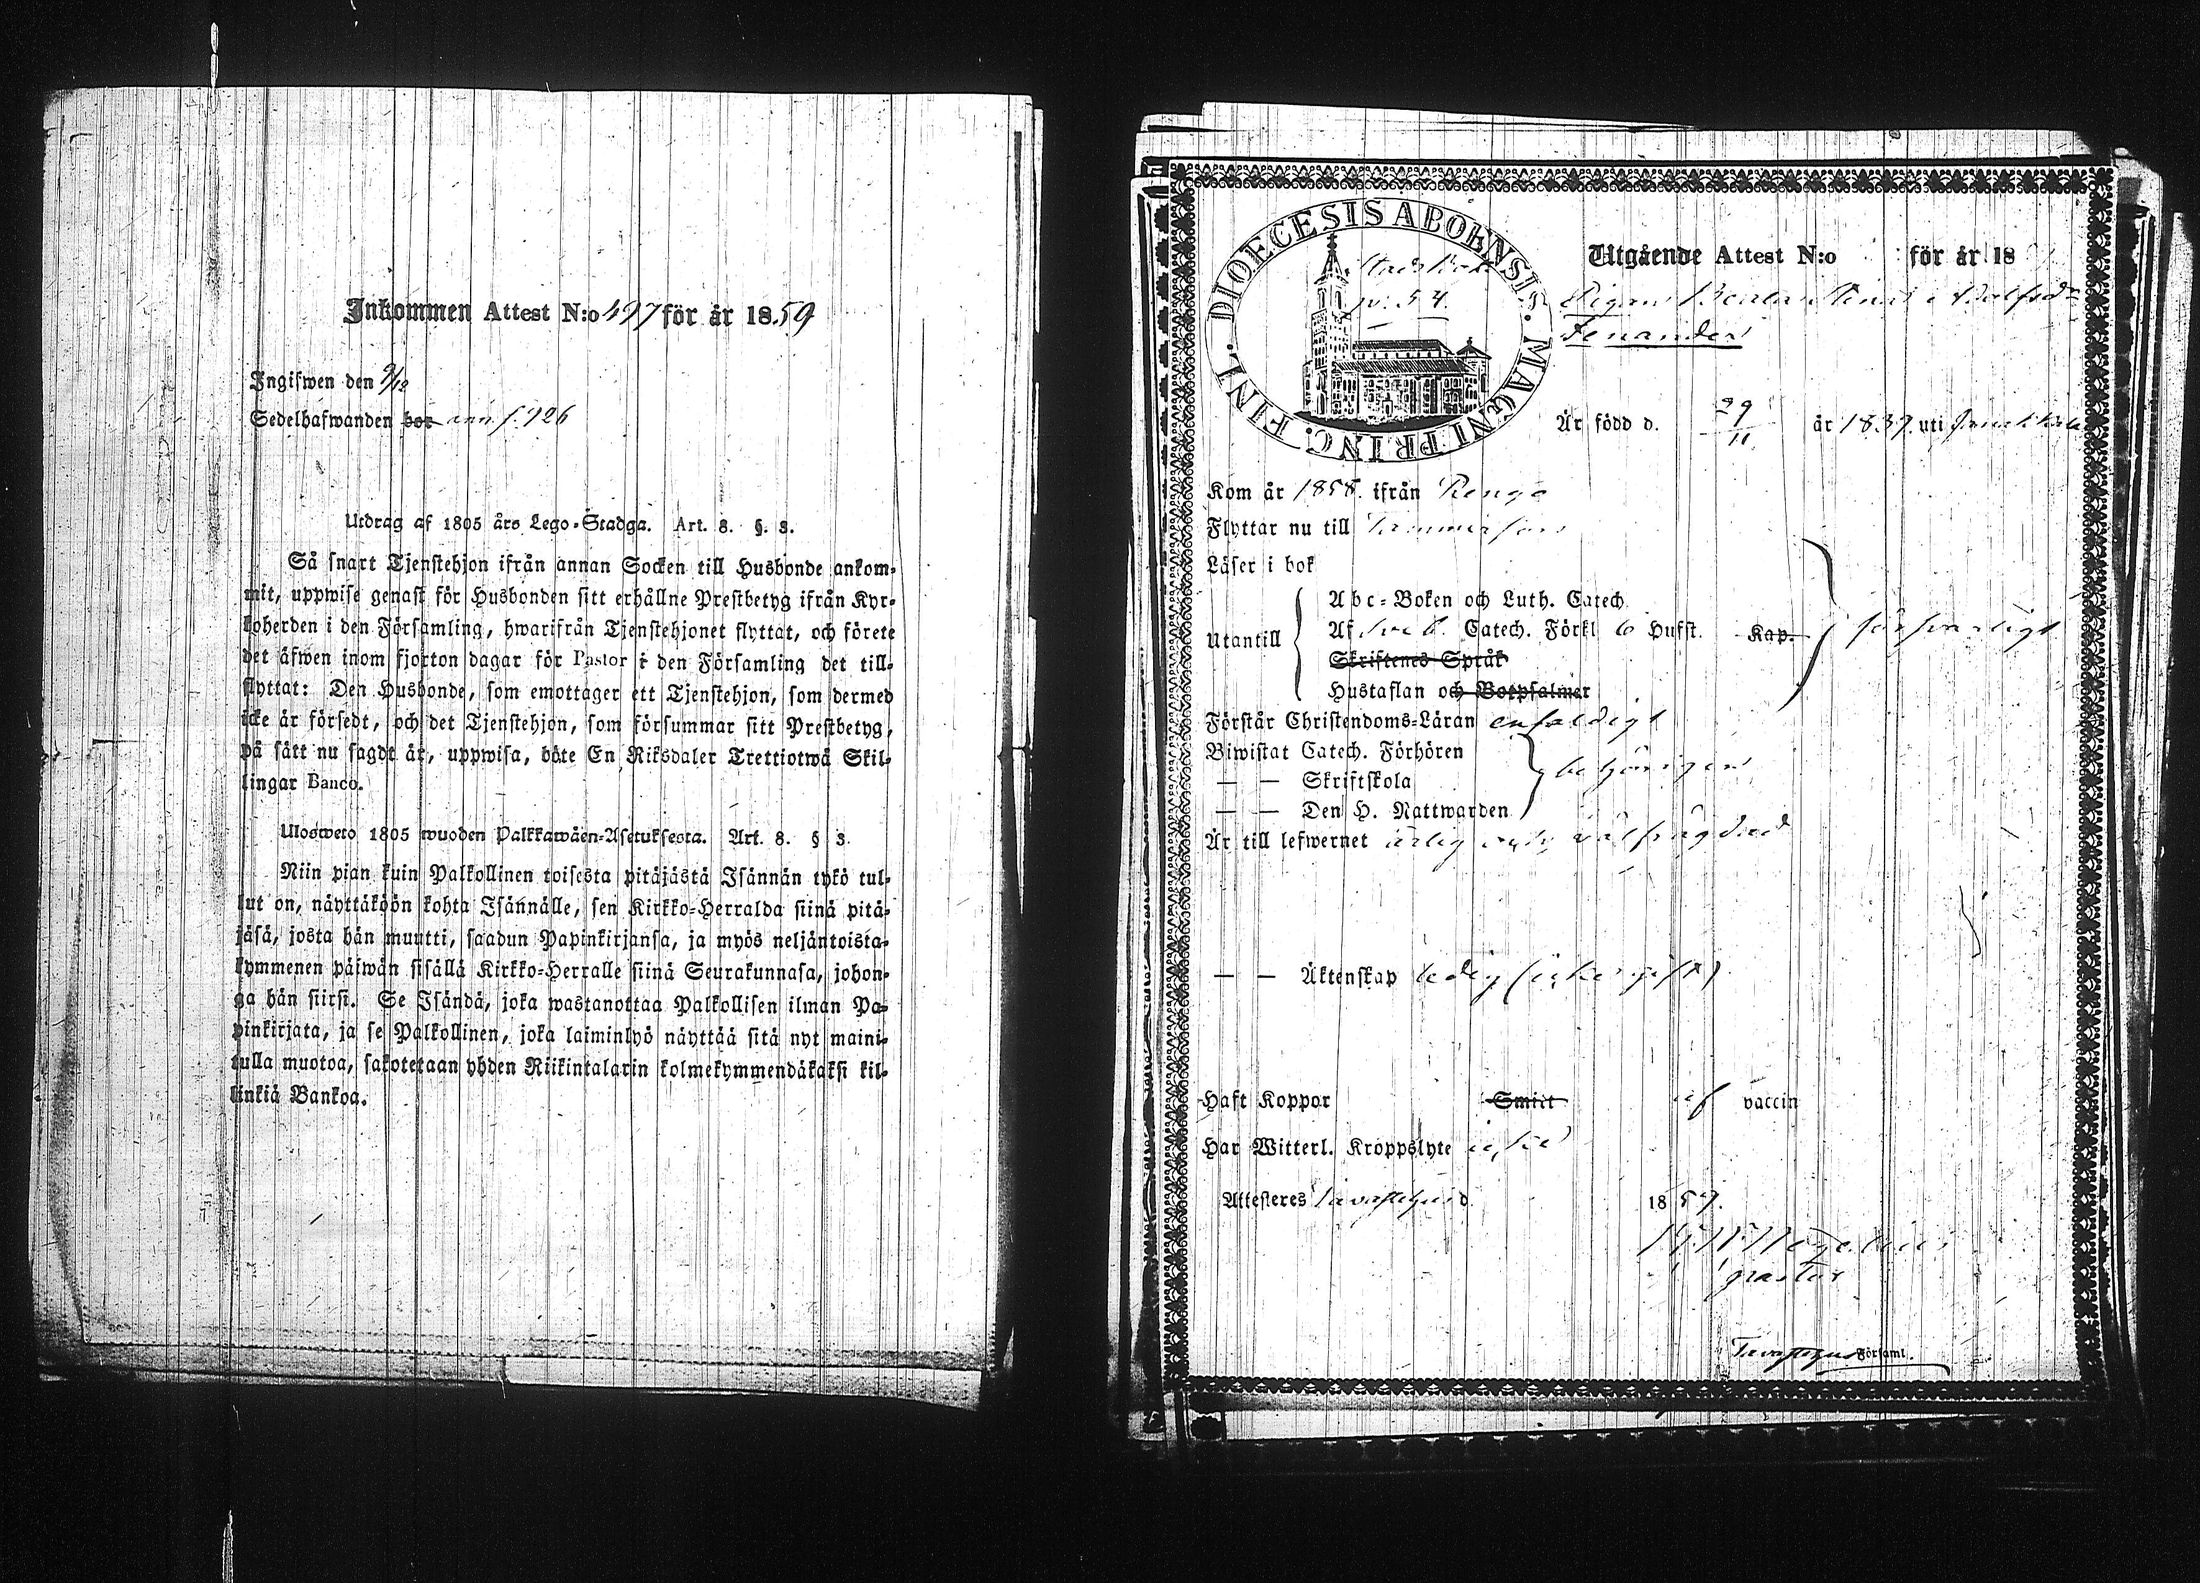 Inkommen Attest N:o 497 för år 1859
Ingifwen den 9/12
Sedelhafwanden bor ann. f. 926
Utdrag af 1805 års Lego-Stadga. Art. 8. §. 3.
Så snart Tjenstehjon ifrån annan Socken till Husbonde ankom-
mit, uppwise genast för Husbonden sitt erhållne Prestbetyg ifrån Kyr-
koherden i den Församling, hwarifrån Tjenstehjonet flyttat, och förete
det äfwen inom fjorton dagar för Pastor i den Församling det till-
flyttat: Den Husbonde, som emottager ett Tjenstehjon, som dermed
icke är försedt, och det Tjenstehjon, som försummar sitt Prestbetyg,
på sätt nu sagdt är, uppwisa, böte En Riksdaler Trettiotwå Skil-
lingar Banco.
Ulosweto 1805 wuoden Palkkawäen-Asetuksesta. Art. 8. § 3.
Niin pian kuin Palkollinen toisesta pitäjästä Isännän tykö tul-
lut on, näyttäköön kohta Isännälle, sen Kirkko-Herralda siinä pitä-
jäsä, josta hän muutti, saadun Papinkirjansa, ja myös neljäntoista-
kymmenen päiwän sisällä Kirkko-Herralle siinä Seurakunnasa, johon-
ga hän siirsi. Se Isändä, joka wastanottaa Palkollisen ilman Pa-
pinkirjata, ja se Palkollinen, joka laiminlyö näyttää sitä nyt maini-
tulla muotoa, sakotetaan yhden Riikintalarin kolmekymmendäkaksi kil-
linkiä Bankoa.
DIOECESIS ABOENSIS. MAGNI PRINC. FINL.
p. 54.
Utgående Attest N:o för år 18
Pigan
Fenander
Är född d. 29/11 år 1837. uti Janakkala
Kom år 1858. ifrån Rengo
Flyttar nu till Tammerfors
Läser i bok
Utantill
Abc-Boken och Luth. Catech.
Af Sveb. Catech. Förkl. o Hufst. Kap. försvarligt
Skriftenes Språk
Hustaflan och Botpsalmer
Förstår Christendoms-Läran enfaldigt
Biwistat Catech. Förhören
— — Skriftskola behörigen
— — Den H. Nattwarden
Är till lefwernet ärlig och välfrägdad
— — Äktenskap ledig (icke gift)
Haft Koppor Smitt af vaccin
Har Witterl. Kroppslyte icke
Attesteres Tavastehus d. 1859.
pastor
Tavastehus Församl.